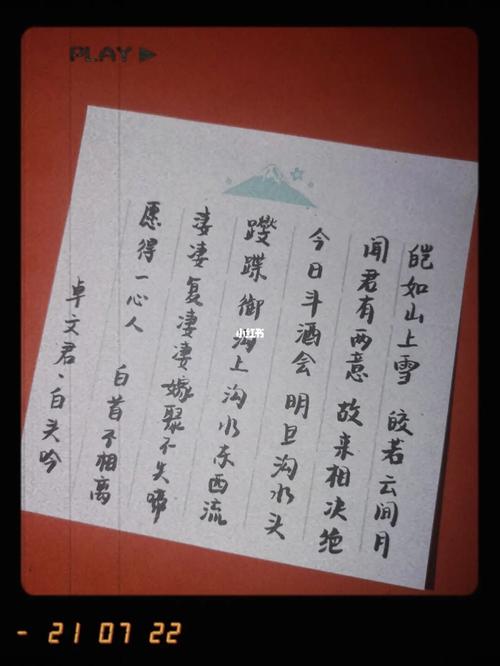 PLAY
皑如山上雪 皎若云间月
闻君有两意 故来相决绝
今日斗酒会 明旦沟水头
躞蹀御沟上 沟水东西流
凄凄复凄凄 嫁聚不失啼
愿得一心人 白首不相离
卓文君·白头吟
小红书
- 21 07 22